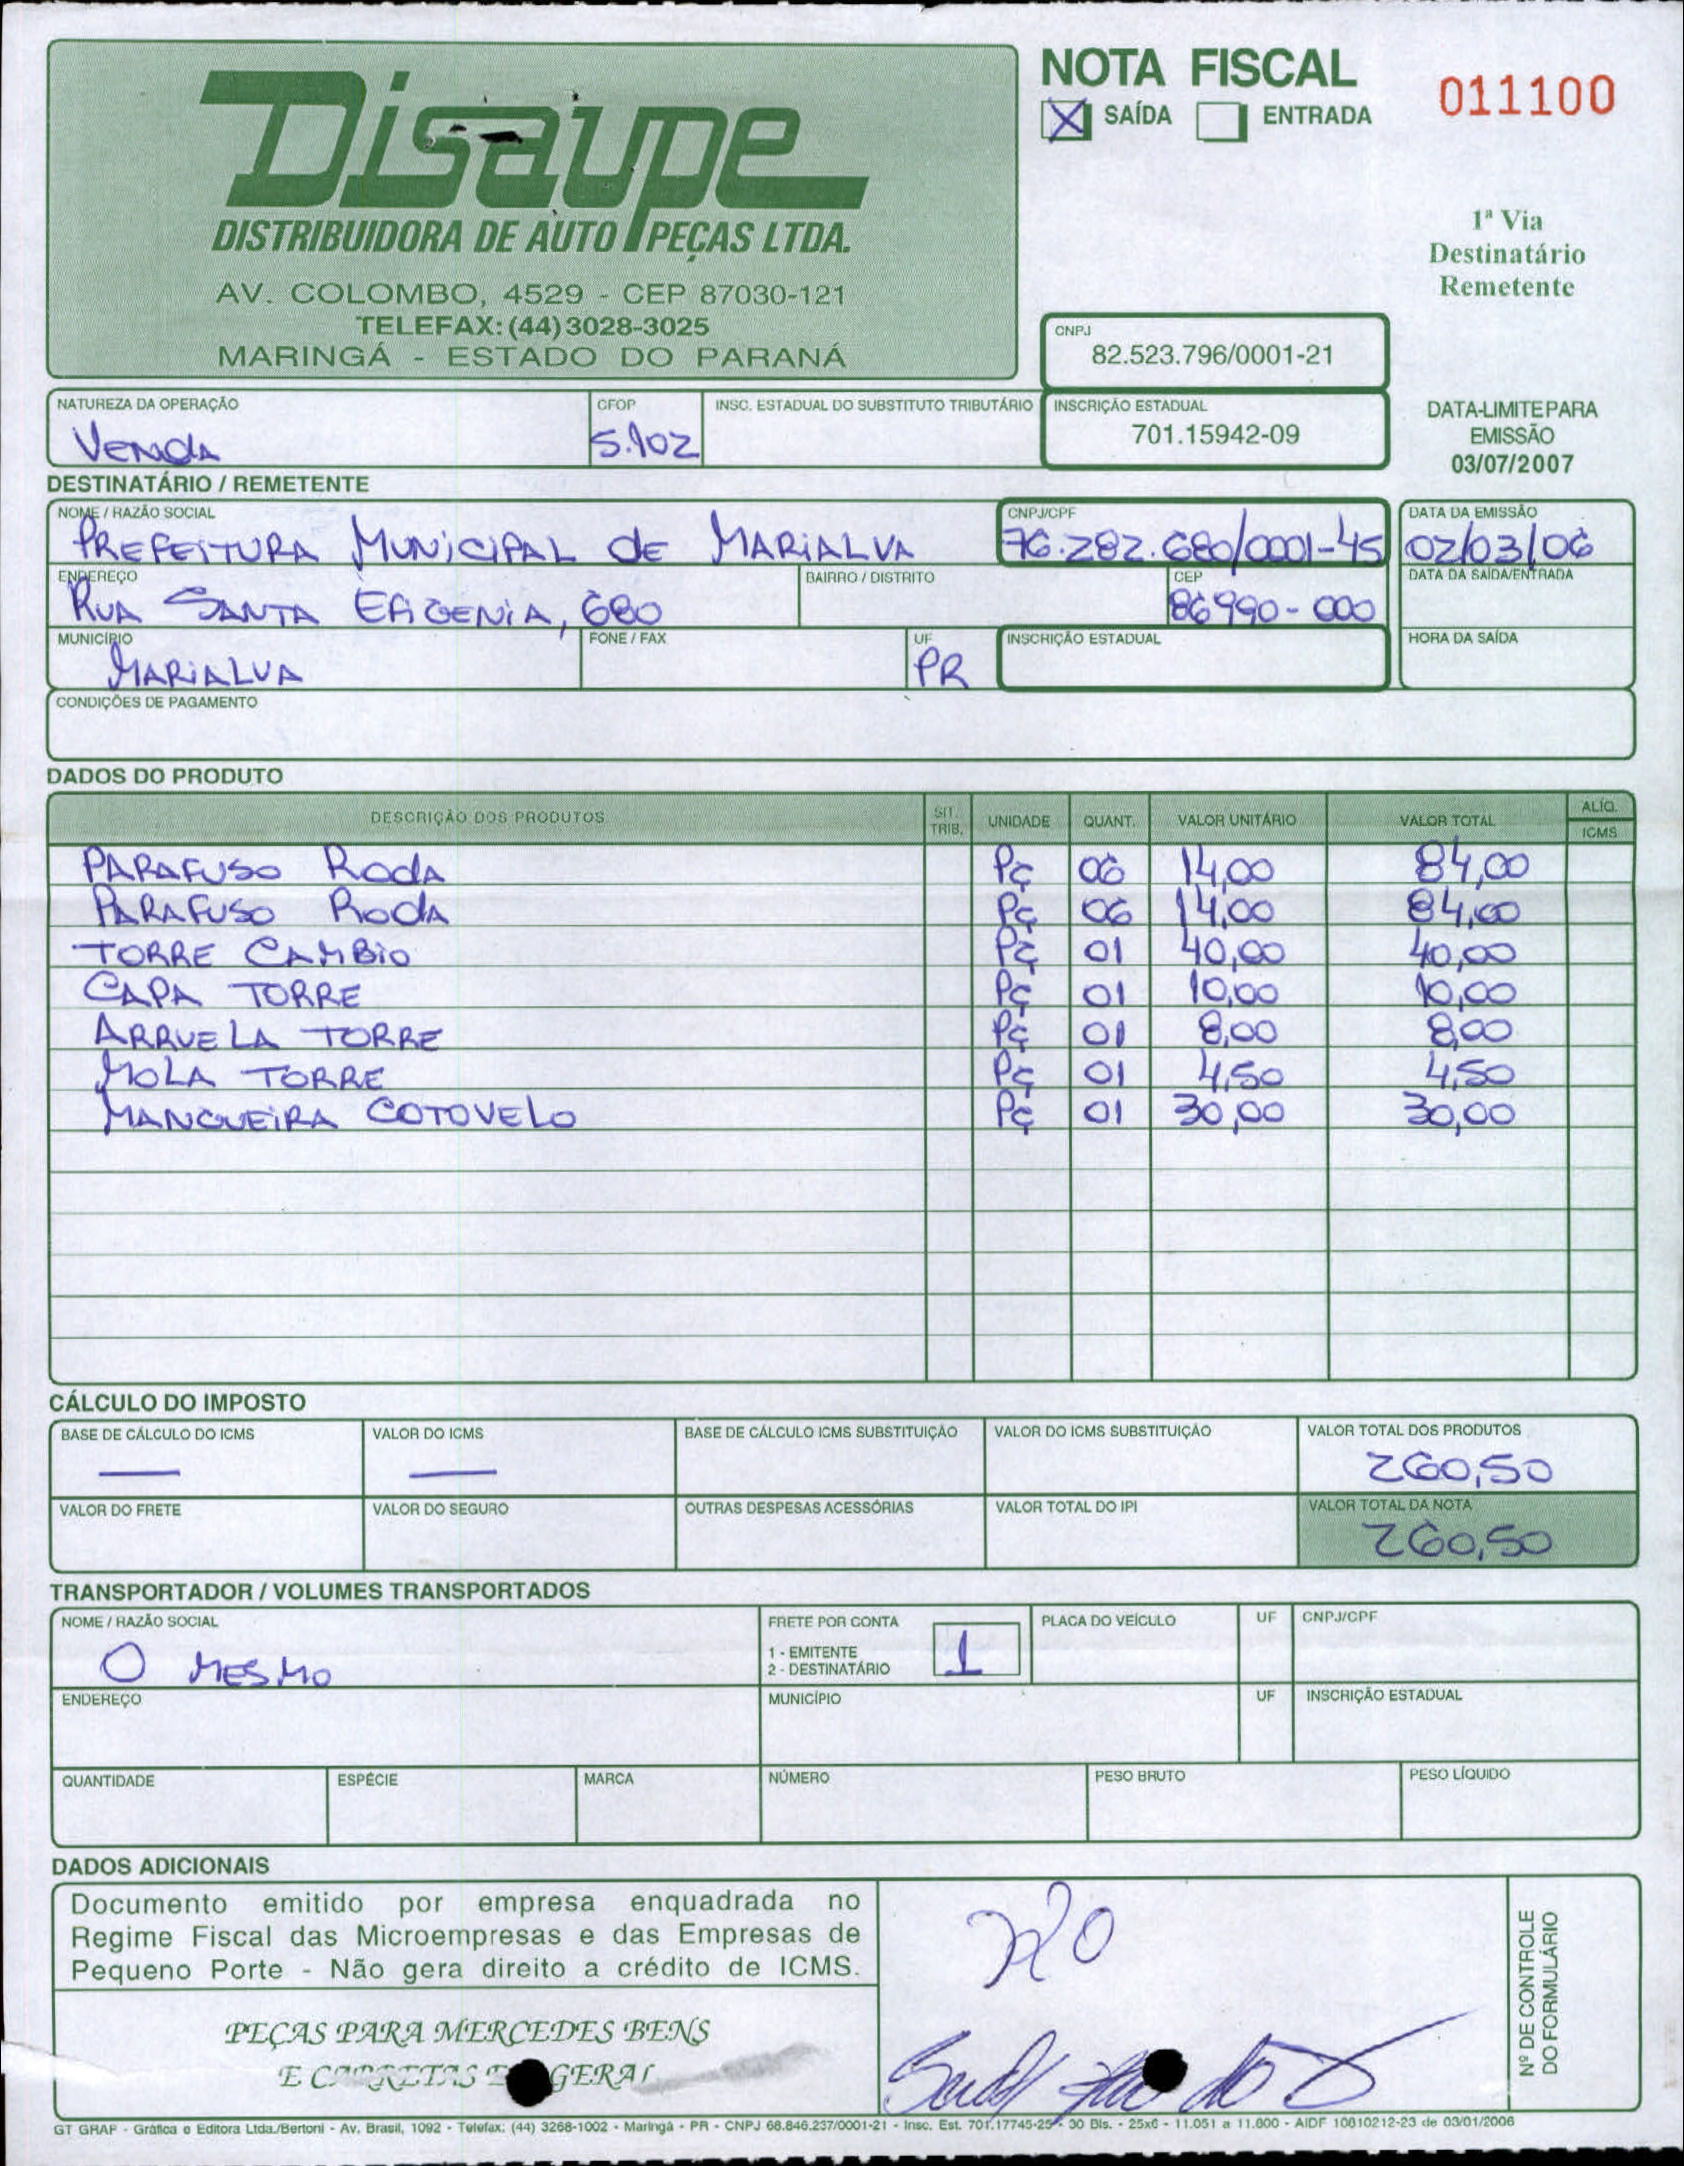 Disaupe
DISTRIBUIDORA DE AUTO PEÇAS LTDA.
AV. COLOMBO, 4529 - CEP 87030-121
TELEFAX: (44) 3028-3025
MARINGÁ - ESTADO DO PARANÁ
NOTA FISCAL
X SAÍDA ENTRADA
011100
1ª Via
Destinatário
Remetente
CNPJ
82.523.796/0001-21
NATUREZA DA OPERAÇÃO CFOP INSC. ESTADUAL DO SUBSTITUTO TRIBUTÁRIO INSCRIÇÃO ESTADUAL
Venda 5.102 701.15942-09
DATA-LIMITE PARA
EMISSÃO
03/07/2007
DESTINATÁRIO / REMETENTE
NOME / RAZÃO SOCIAL CNPJ/CPF DATA DA EMISSÃO
PREFEITURA MUNICIPAL de MARIALVA 76.282.680/0001-45 02/03/06
ENDEREÇO BAIRRO / DISTRITO CEP DATA DA SAÍDA/ENTRADA
RUA SANTA EFIGENIA, 680 86990-000
MUNICÍPIO FONE / FAX UF INSCRIÇÃO ESTADUAL HORA DA SAÍDA
MARIALVA PR
CONDIÇÕES DE PAGAMENTO
DADOS DO PRODUTO
DESCRIÇÃO DOS PRODUTOS SIT. TRIB. UNIDADE QUANT. VALOR UNITÁRIO VALOR TOTAL ALÍQ. ICMS
PARAFUSO Roda Pç 06 14,00 84,00
PARAFUSO Roda Pç 06 14,00 84,00
TORRE CAMBIO Pç 01 40,00 40,00
CAPA TORRE Pç 01 10,00 10,00
ARRUELA TORRE Pç 01 8,00 8,00
MOLA TORRE Pç 01 4,50 4,50
MANGUEIRA COTOVELO Pç 01 30,00 30,00
CÁLCULO DO IMPOSTO
BASE DE CÁLCULO DO ICMS VALOR DO ICMS BASE DE CÁLCULO ICMS SUBSTITUIÇÃO VALOR DO ICMS SUBSTITUIÇÃO VALOR TOTAL DOS PRODUTOS
— — 260,50
VALOR DO FRETE VALOR DO SEGURO OUTRAS DESPESAS ACESSÓRIAS VALOR TOTAL DO IPI VALOR TOTAL DA NOTA
260,50
TRANSPORTADOR / VOLUMES TRANSPORTADOS
NOME / RAZÃO SOCIAL FRETE POR CONTA PLACA DO VEÍCULO UF CNPJ/CPF
O MESMO 1 - EMITENTE 1
2 - DESTINATÁRIO
ENDEREÇO MUNICÍPIO UF INSCRIÇÃO ESTADUAL
QUANTIDADE ESPÉCIE MARCA NÚMERO PESO BRUTO PESO LÍQUIDO
DADOS ADICIONAIS
Documento emitido por empresa enquadrada no
Regime Fiscal das Microempresas e das Empresas de
Pequeno Porte - Não gera direito a crédito de ICMS.
PEÇAS PARA MERCEDES BENS
E CARRETAS EM GERAL
Nº DE CONTROLE
DO FORMULÁRIO
GT GRAF - Gráfica e Editora Ltda./Bertoni - Av. Brasil, 1092 - Telefax: (44) 3268-1002 - Maringá - PR - CNPJ 68.846.237/0001-21 - Insc. Est. 701.17745-25 - 30 Bls. - 25x6 - 11.051 a 11.800 - AIDF 10610212-23 de 03/01/2006